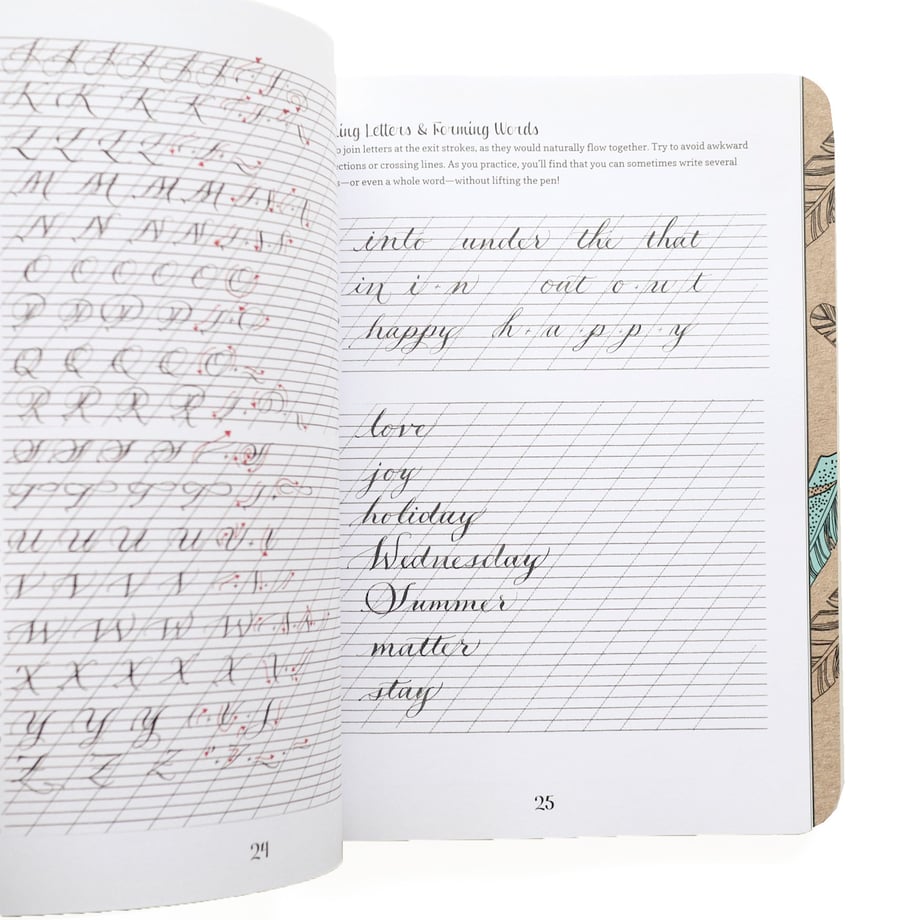 K K K K
L L L L
M M M M
N N N N
O O O O O O
P P P P
Q Q Q Q Q
R R R R
S S S S
T T T T
U U U U
V V V V
W W W W
X X X X X
Y Y Y
Z Z Z
24
ing Letters & Forming Words
o join letters at the exit strokes, as they would naturally flow together. Try to avoid awkward
ections or crossing lines. As you practice, you'll find that you can sometimes write several
s—or even a whole word—without lifting the pen!
into under the that
in i · n out o · u t
happy h · a · p · p · y
love
joy
holiday
Wednesday
Summer
matter
stay
25